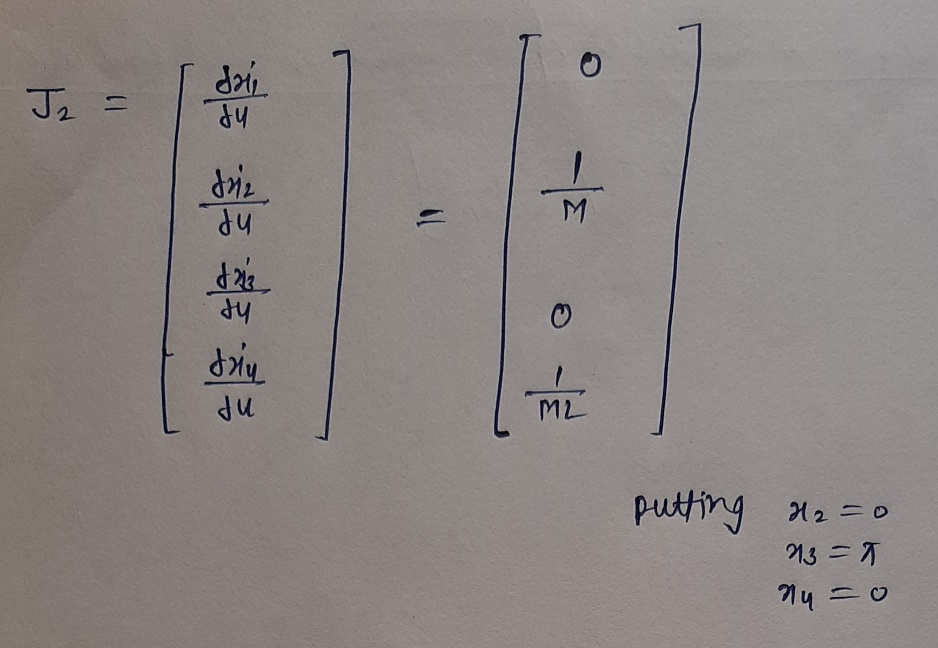 J₂ = [ dẋ₁/du ; dẋ₂/du ; dẋ₃/du ; dẋ₄/du ] = [ 0 ; 1/M ; 0 ; 1/ML ]
putting x₂ = 0
x₃ = π
x₄ = 0